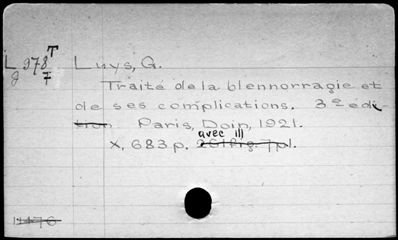 L 978 T Luys, G.
g F
Traité de la blennorragie et
de ses complications. 3e edi
tion Paris, Doin, 1921.
avec ill
x, 683 p. 261 fig. 7 pl.
11476